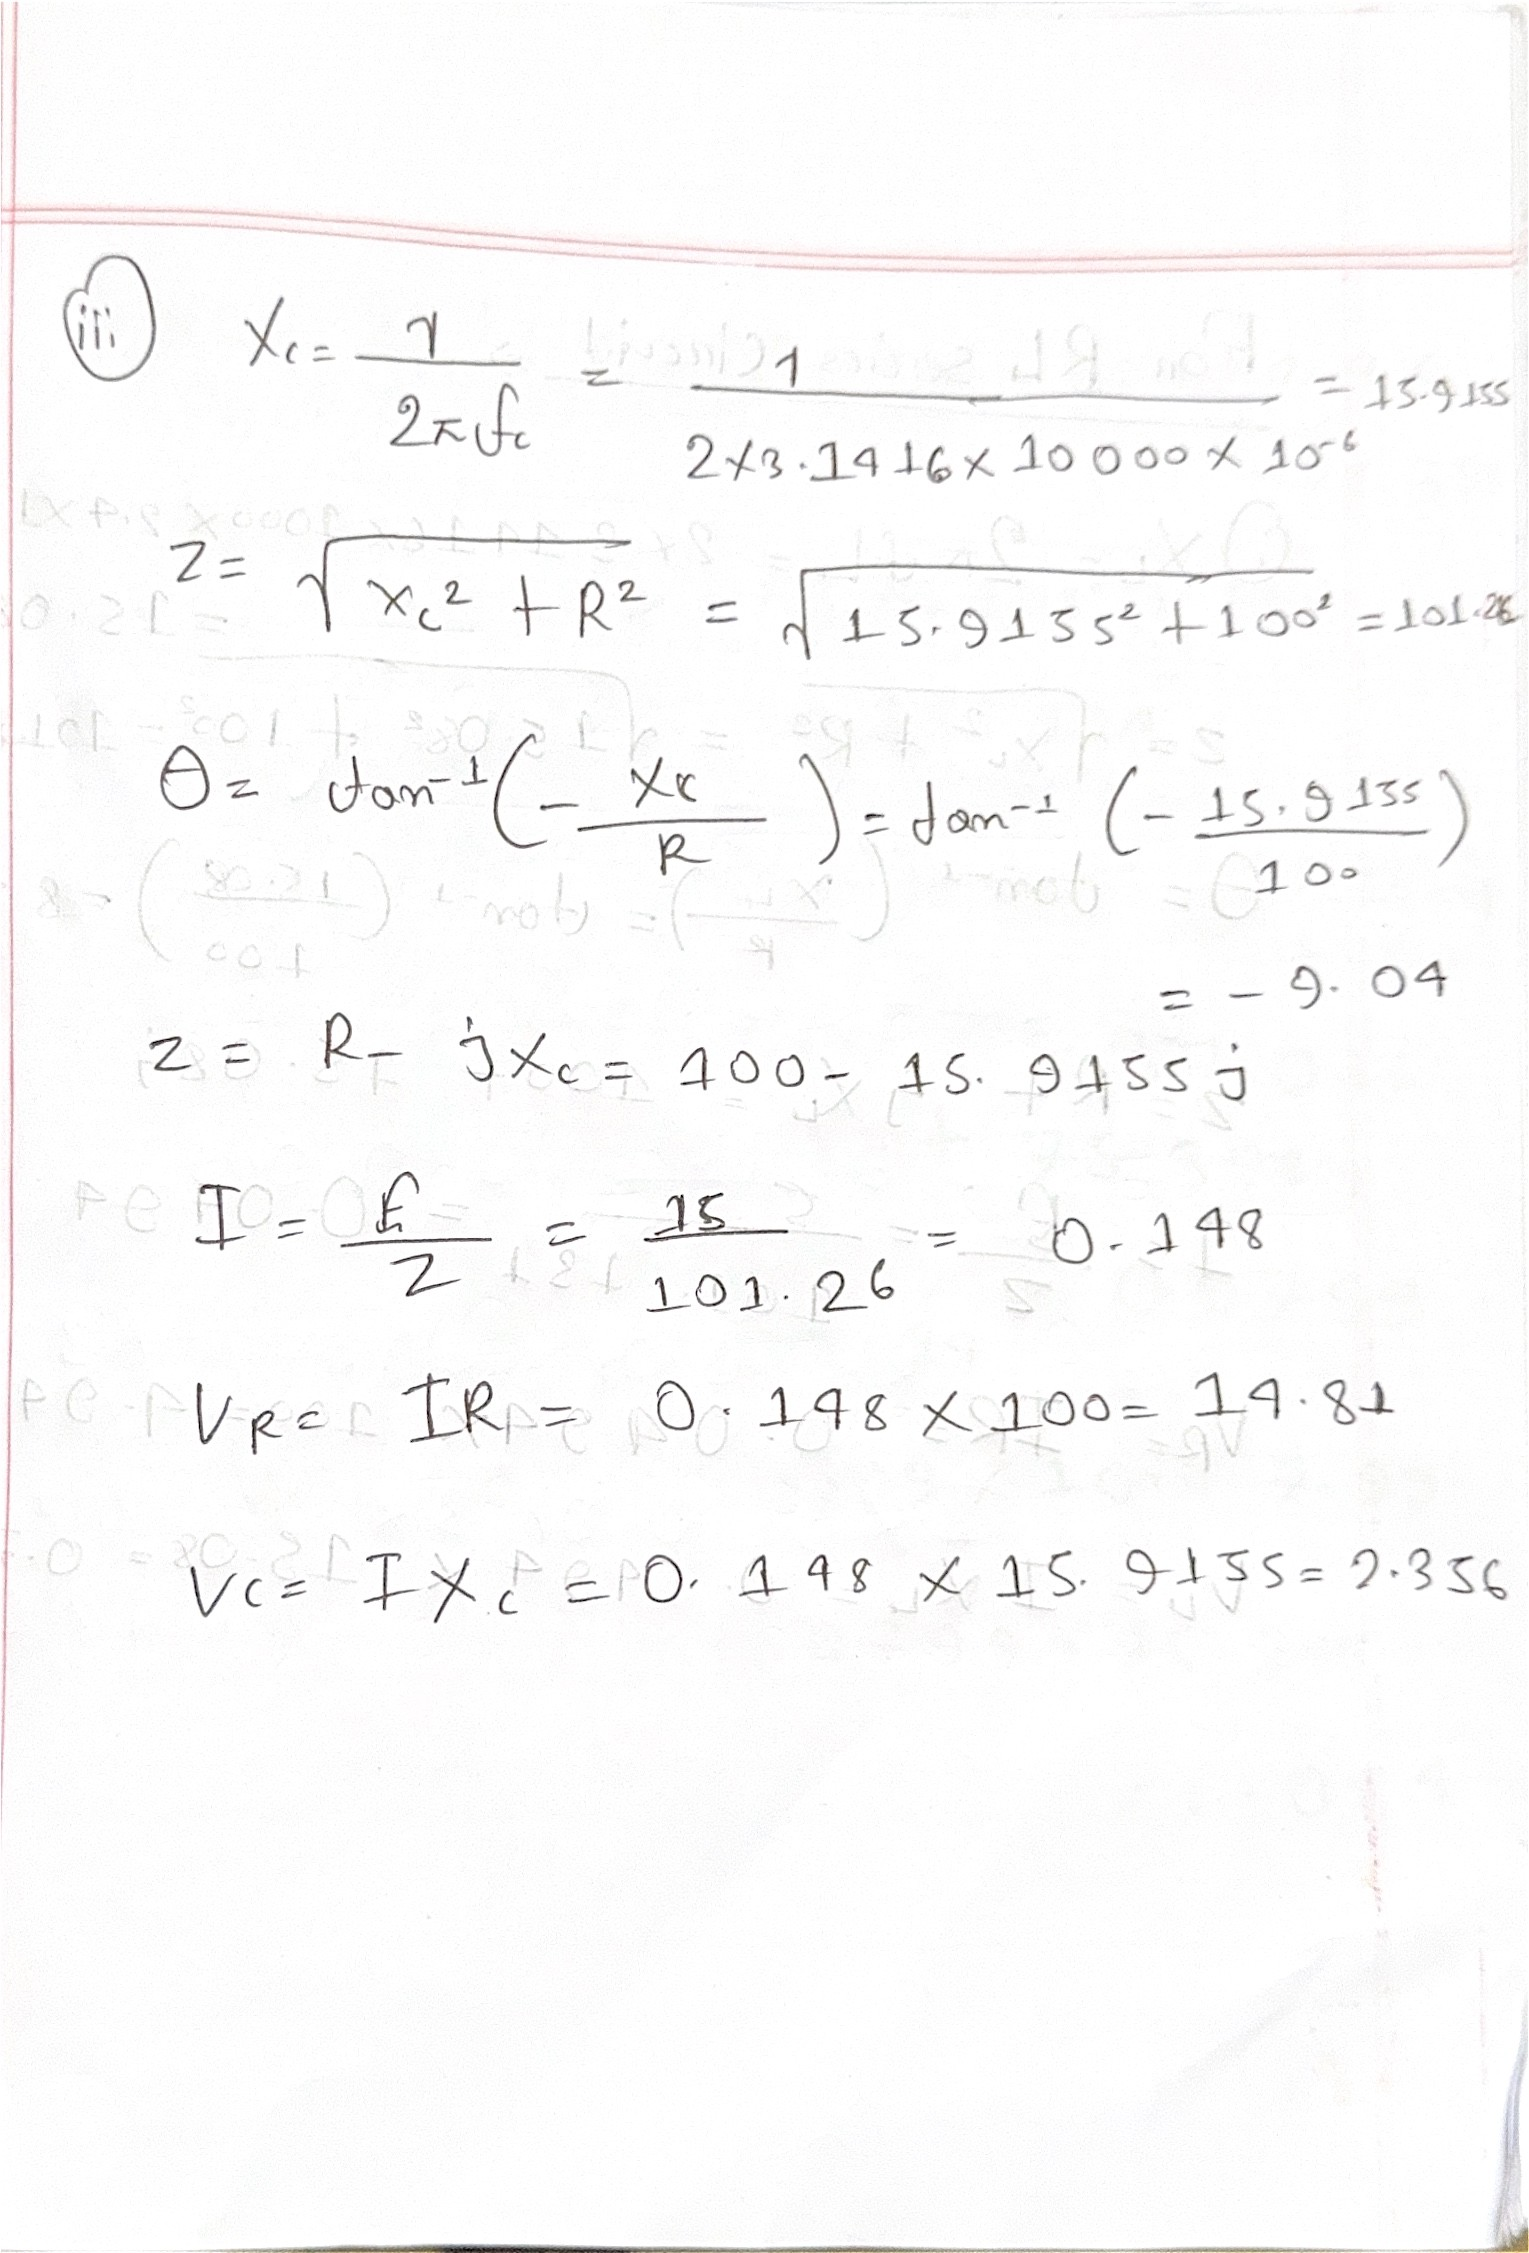 iii Xc = 1 / 2πfc = 1 / 2×3.1416×10000×10^-6 = 15.9155
Z = √(Xc² + R²) = √(15.9155² + 100²) = 101.26
θ = tan^-1 (- Xc / R) = tan^-1 (- 15.9155 / 100)
= - 9.04
Z = R - jXc = 100 - 15.9155 j
I = E / Z = 15 / 101.26 = 0.148
VR = IR = 0.148 × 100 = 14.81
Vc = IXc = 0.148 × 15.9155 = 2.356